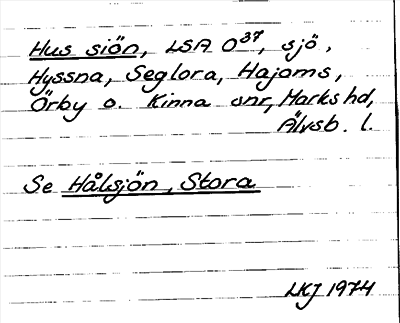 Hus siön, LSA O37, sjö,
Hyssna, Seglora, Hajoms,
Örby o. Kinna snr, Marks hd,
Älvsb. l.
Se Hålsjön, Stora
LKJ 1974